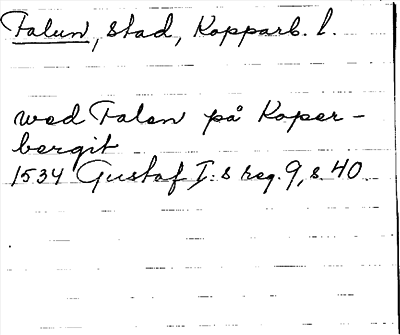 Falun, stad, Kopparb. l.
wed Falan på Koper-
bergit
1534 Gustaf I:s reg. 9, s. 40.